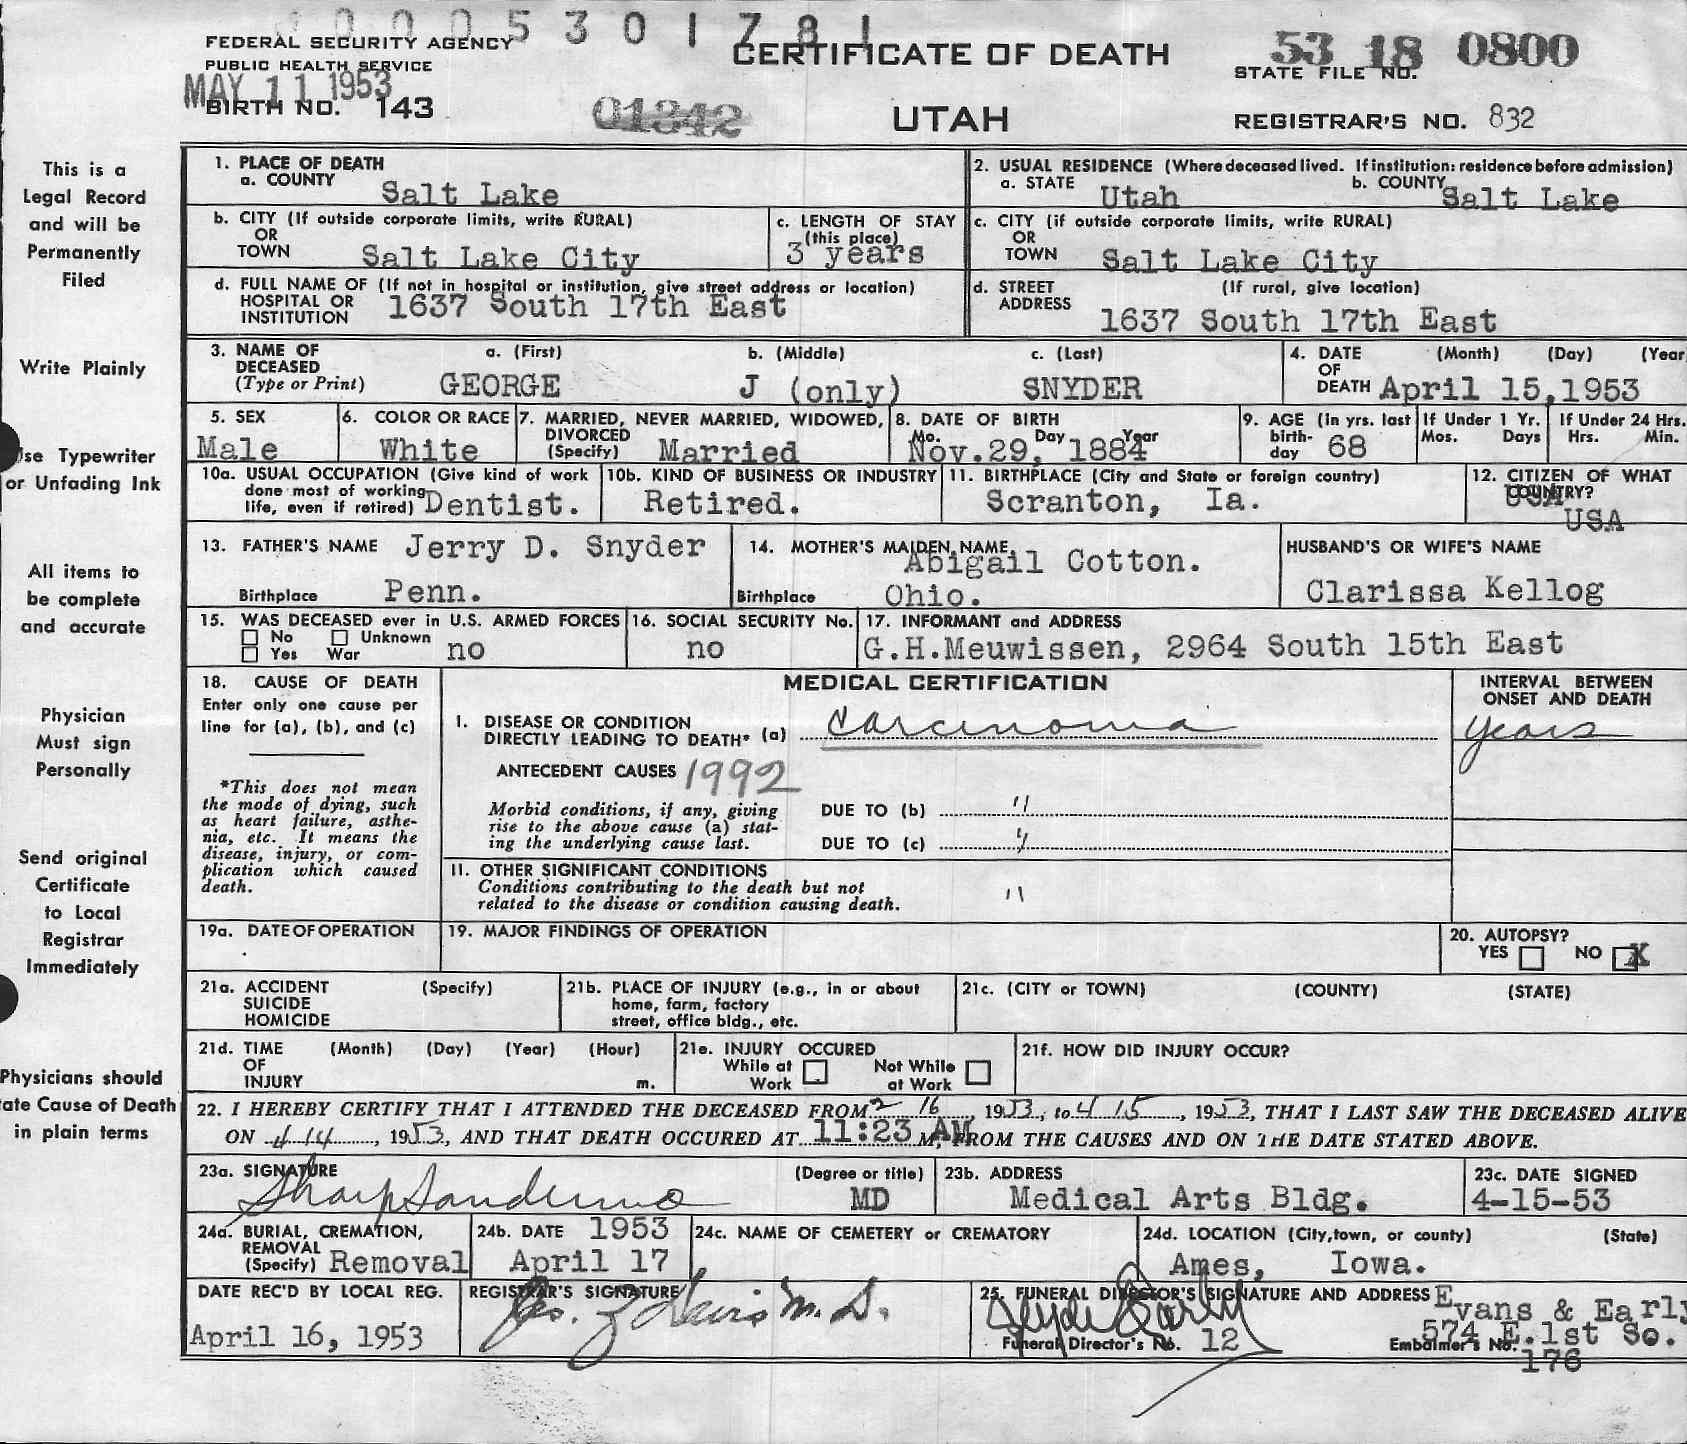 0 0 0 5 3 0 1 7 8 1
FEDERAL SECURITY AGENCY
PUBLIC HEALTH SERVICE
MAY 11 1953
BIRTH NO. 143
01342
CERTIFICATE OF DEATH
UTAH
53 18 0800
STATE FILE NO.
REGISTRAR'S NO. 832
This is a
Legal Record
and will be
Permanently
Filed
Write Plainly
Use Typewriter
or Unfading Ink
All items to
be complete
and accurate
Physician
Must sign
Personally
Send original
Certificate
to Local
Registrar
Immediately
Physicians should
ate Cause of Death
in plain terms
1. PLACE OF DEATH
a. COUNTY Salt Lake
b. CITY (If outside corporate limits, write RURAL)
OR
TOWN Salt Lake City
c. LENGTH OF STAY
(this place)
3 years
d. FULL NAME OF (If not in hospital or institution, give street address or location)
HOSPITAL OR
INSTITUTION 1637 South 17th East
2. USUAL RESIDENCE (Where deceased lived. If institution: residence before admission)
a. STATE Utah b. COUNTY Salt Lake
c. CITY (if outside corporate limits, write RURAL)
OR
TOWN Salt Lake City
d. STREET (If rural, give location)
ADDRESS 1637 South 17th East
3. NAME OF a. (First) b. (Middle) c. (Last)
DECEASED
(Type or Print) GEORGE J (only) SNYDER
4. DATE (Month) (Day) (Year
OF
DEATH April 15,1953
5. SEX
Male
6. COLOR OR RACE
White
7. MARRIED, NEVER MARRIED, WIDOWED,
DIVORCED
(Specify) Married
8. DATE OF BIRTH
Mo. Day Year
Nov.29, 1884
9. AGE (in yrs. last
birth-
day 68
If Under 1 Yr.
Mos. Days
If Under 24 Hrs.
Hrs. Min.
10a. USUAL OCCUPATION (Give kind of work
done most of working
life, even if retired) Dentist.
10b. KIND OF BUSINESS OR INDUSTRY
Retired.
11. BIRTHPLACE (City and State or foreign country)
Scranton, Ia.
12. CITIZEN OF WHAT
COUNTRY?
USA
13. FATHER'S NAME Jerry D. Snyder
Birthplace Penn.
14. MOTHER'S MAIDEN NAME
Abigail Cotton.
Birthplace Ohio.
HUSBAND'S OR WIFE'S NAME
Clarissa Kellog
15. WAS DECEASED ever in U.S. ARMED FORCES
No Unknown
Yes War no
16. SOCIAL SECURITY No.
no
17. INFORMANT and ADDRESS
G.H.Meuwissen, 2964 South 15th East
18. CAUSE OF DEATH
Enter only one cause per
line for (a), (b), and (c)
*This does not mean
the mode of dying, such
as heart failure, asthe-
nia, etc. It means the
disease, injury, or com-
plication which caused
death.
MEDICAL CERTIFICATION
I. DISEASE OR CONDITION
DIRECTLY LEADING TO DEATH* (a) Carcinoma
ANTECEDENT CAUSES 1992
Morbid conditions, if any, giving
rise to the above cause (a) stat-
ing the underlying cause last.
DUE TO (b) "
DUE TO (c) "
II. OTHER SIGNIFICANT CONDITIONS
Conditions contributing to the death but not
related to the disease or condition causing death. "
INTERVAL BETWEEN
ONSET AND DEATH
years
19a. DATE OF OPERATION
19. MAJOR FINDINGS OF OPERATION
20. AUTOPSY?
YES NO X
21a. ACCIDENT (Specify)
SUICIDE
HOMICIDE
21b. PLACE OF INJURY (e.g., in or about
home, farm, factory
street, office bldg., etc.
21c. (CITY or TOWN) (COUNTY) (STATE)
21d. TIME (Month) (Day) (Year) (Hour)
OF
INJURY m.
21e. INJURY OCCURED
While at Work
Not While at Work
21f. HOW DID INJURY OCCUR?
22. I HEREBY CERTIFY THAT I ATTENDED THE DECEASED FROM 2 16, 1953, to 4 15, 1953, THAT I LAST SAW THE DECEASED ALIVE
ON 4 14, 1953, AND THAT DEATH OCCURED AT 11:23 AM M, FROM THE CAUSES AND ON THE DATE STATED ABOVE.
23a. SIGNATURE (Degree or title)
MD
23b. ADDRESS
Medical Arts Bldg.
23c. DATE SIGNED
4-15-53
24a. BURIAL, CREMATION,
REMOVAL
(Specify) Removal
24b. DATE 1953
April 17
24c. NAME OF CEMETERY or CREMATORY
24d. LOCATION (City,town, or county) (State)
Ames, Iowa.
DATE REC'D BY LOCAL REG.
April 16, 1953
REGISTRAR'S SIGNATURE
25. FUNERAL DIRECTOR'S SIGNATURE AND ADDRESS Evans & Early
574 E.1st So.
Funeral Director's No. 12
Embalmer's No. 176